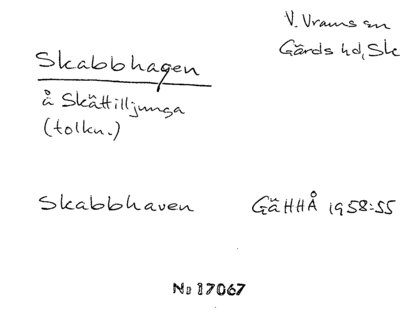 V. Vrams sn
Gärds hd, Sk
Skabbhagen
å Skättilljunga
(tolkn.)
Skabbhaven GäHHÅ 1958:55
No 17067